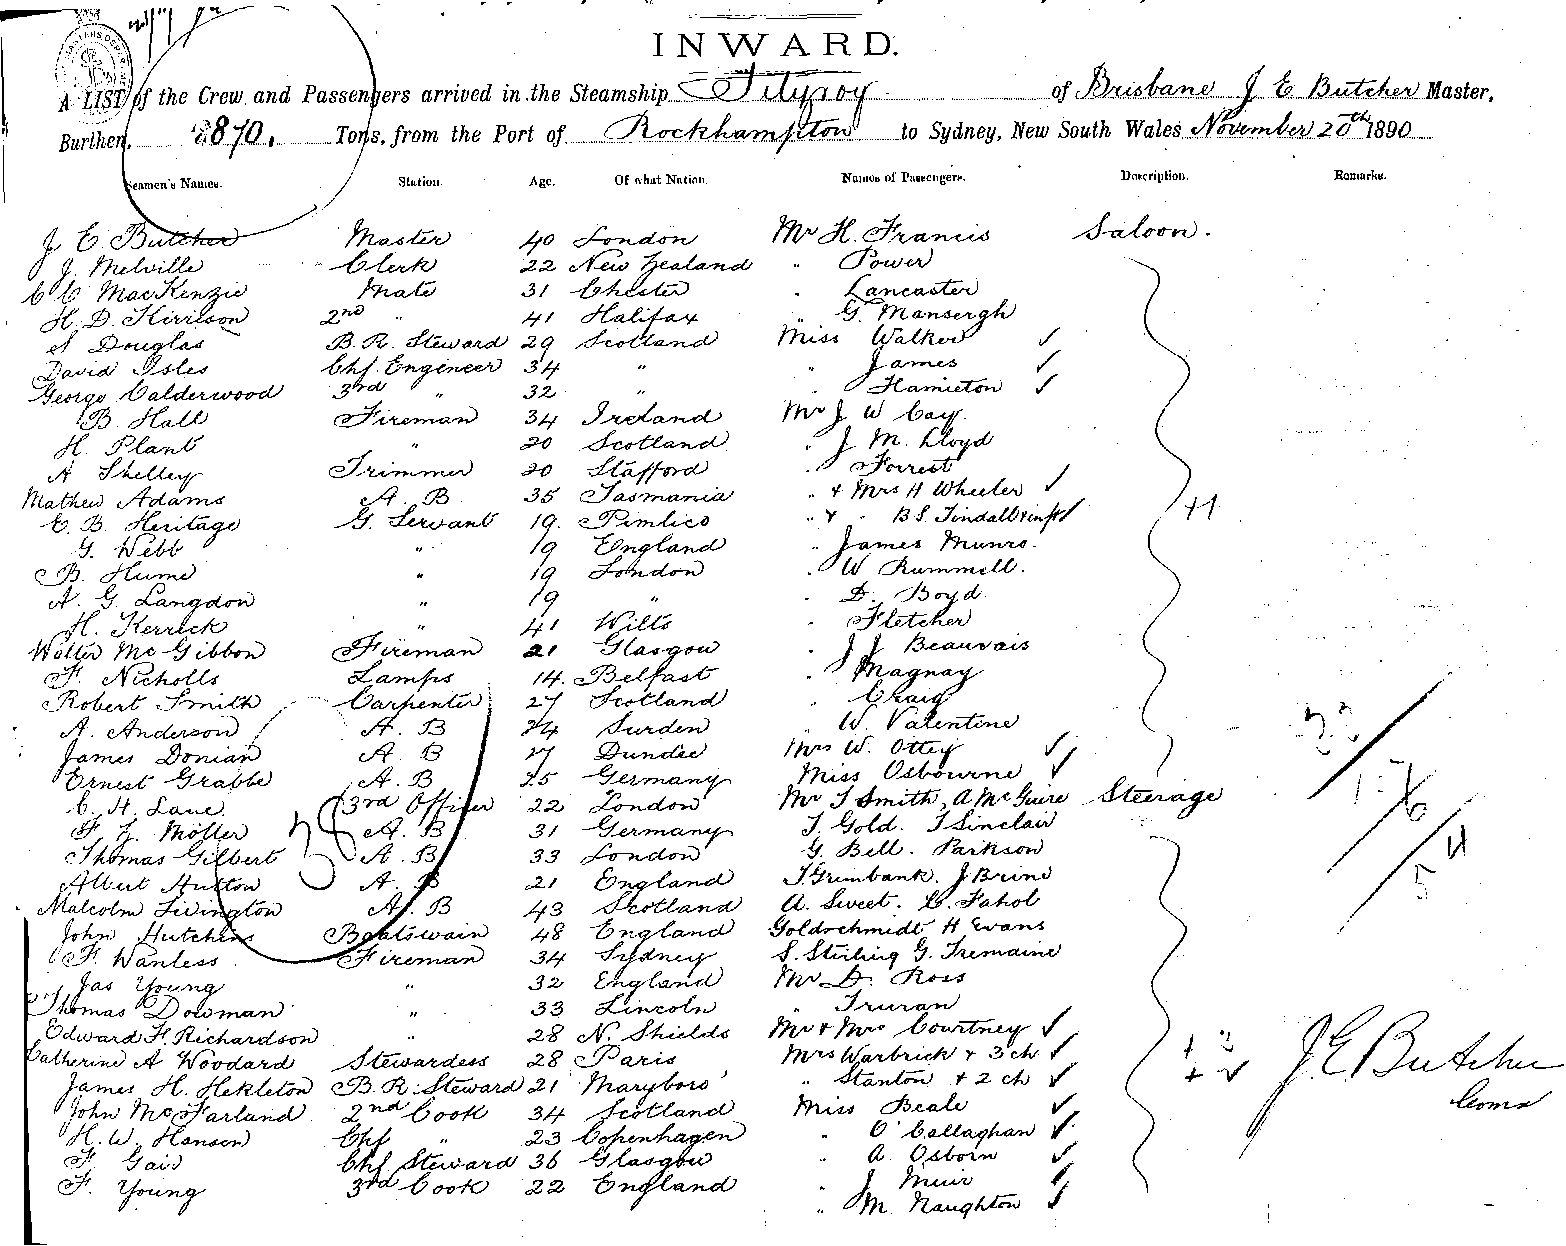 INWARD.
A LIST of the Crew and Passengers arrived in the Steamship Fitzroy of Brisbane J E Butcher Master,
Burthen, 870. Tons, from the Port of Rockhampton to Sydney, New South Wales November 20th 1890
Seamen's Names. Station. Age. Of what Nation. Names of Passengers. Description. Remarks.
J E Butcher Master 40 London Mr H. Francis Saloon.
J. Melville Clerk 22 New Zealand " Power
C C MacKenzie Mate 31 Chester " Lancaster
H. D. Kirrison 2nd " 41 Halifax " G. Mansergh
S Douglas B. R. Steward 29 Scotland Miss Walker ✓
David Isles Chf. Engineer 34 " " James ✓
George Calderwood 3rd " 32 " " Hamieton ✓
B. Hall Fireman 34 Ireland Mr J W Cay.
H. Plant " 20 Scotland " J M. Lloyd
A Shelley Trimmer 20 Stafford " Forrest
Mathew Adams A. B 35 Tasmania " + Mrs H Wheeler ✓
E. B. Heritage G. Servant 19. Pimlico " + " B S. Tindall + inft ✓ 41
G. Webb " 19 England " James Munro.
B. Hume " 19 London " W Rummell.
A. G. Langdon " 19 " " D. Boyd
H. Kerrick " 41 Wilts " Fletcher
Walter McGibbon Fireman 21 Glasgow " J J Beauvais
F. Nicholls Lamps 14. Belfast " Magnay
Robert Smith Carpenter 27 Scotland " Craig
A. Anderson A. B 24 Surden " W. Valentine
James Donian A. B 27 Dundee Mrs W. Ottey ✓
Ernest Grabbe A. B 25 Germany Miss Osbourne ✓
C. H. Lane 3rd Officer 22 London Mr T Smith, A McGuire Steerage
F. J. Möller A. B 31 Germany T. Gold. T Sinclair
Thomas Gilbert A. B 33 London G. Bell. Parkson
Albert Hutton A. B 21 England T. Grimbank. J Brind
Malcolm Livington A. B 43 Scotland A. Sweet. C. Fahol
John Hutchins Boatswain 48 England Goldschmidt H Evans
F. Wanless Fireman 34 Sydney S. Stirling G. Tremaine
Jas Young " 32 England Mr D. Ross
Thomas Dowman " 33 Lincoln " Truran
Edward F. Richardson " 28 N. Shields Mr + Mrs Courtney ✓
Catherine A Woodard Stewardess 28 Paris Mrs Warbrick + 3 ch ✓
James H. Hekleton B. R. Steward 21 Maryboro' " Stanton + 2 ch ✓
John McFarland 2nd Cook 34 Scotland Miss Beale ✓
H. W. Hansen Chf " 23 Copenhagen " O'Callaghan ✓
F Gair Chf Steward 36 Glasgow " A. Osborn ✓
F. Young 3rd Cook 22 England " J Muir ✓
" M. Naughton ✓
J. E. Butcher